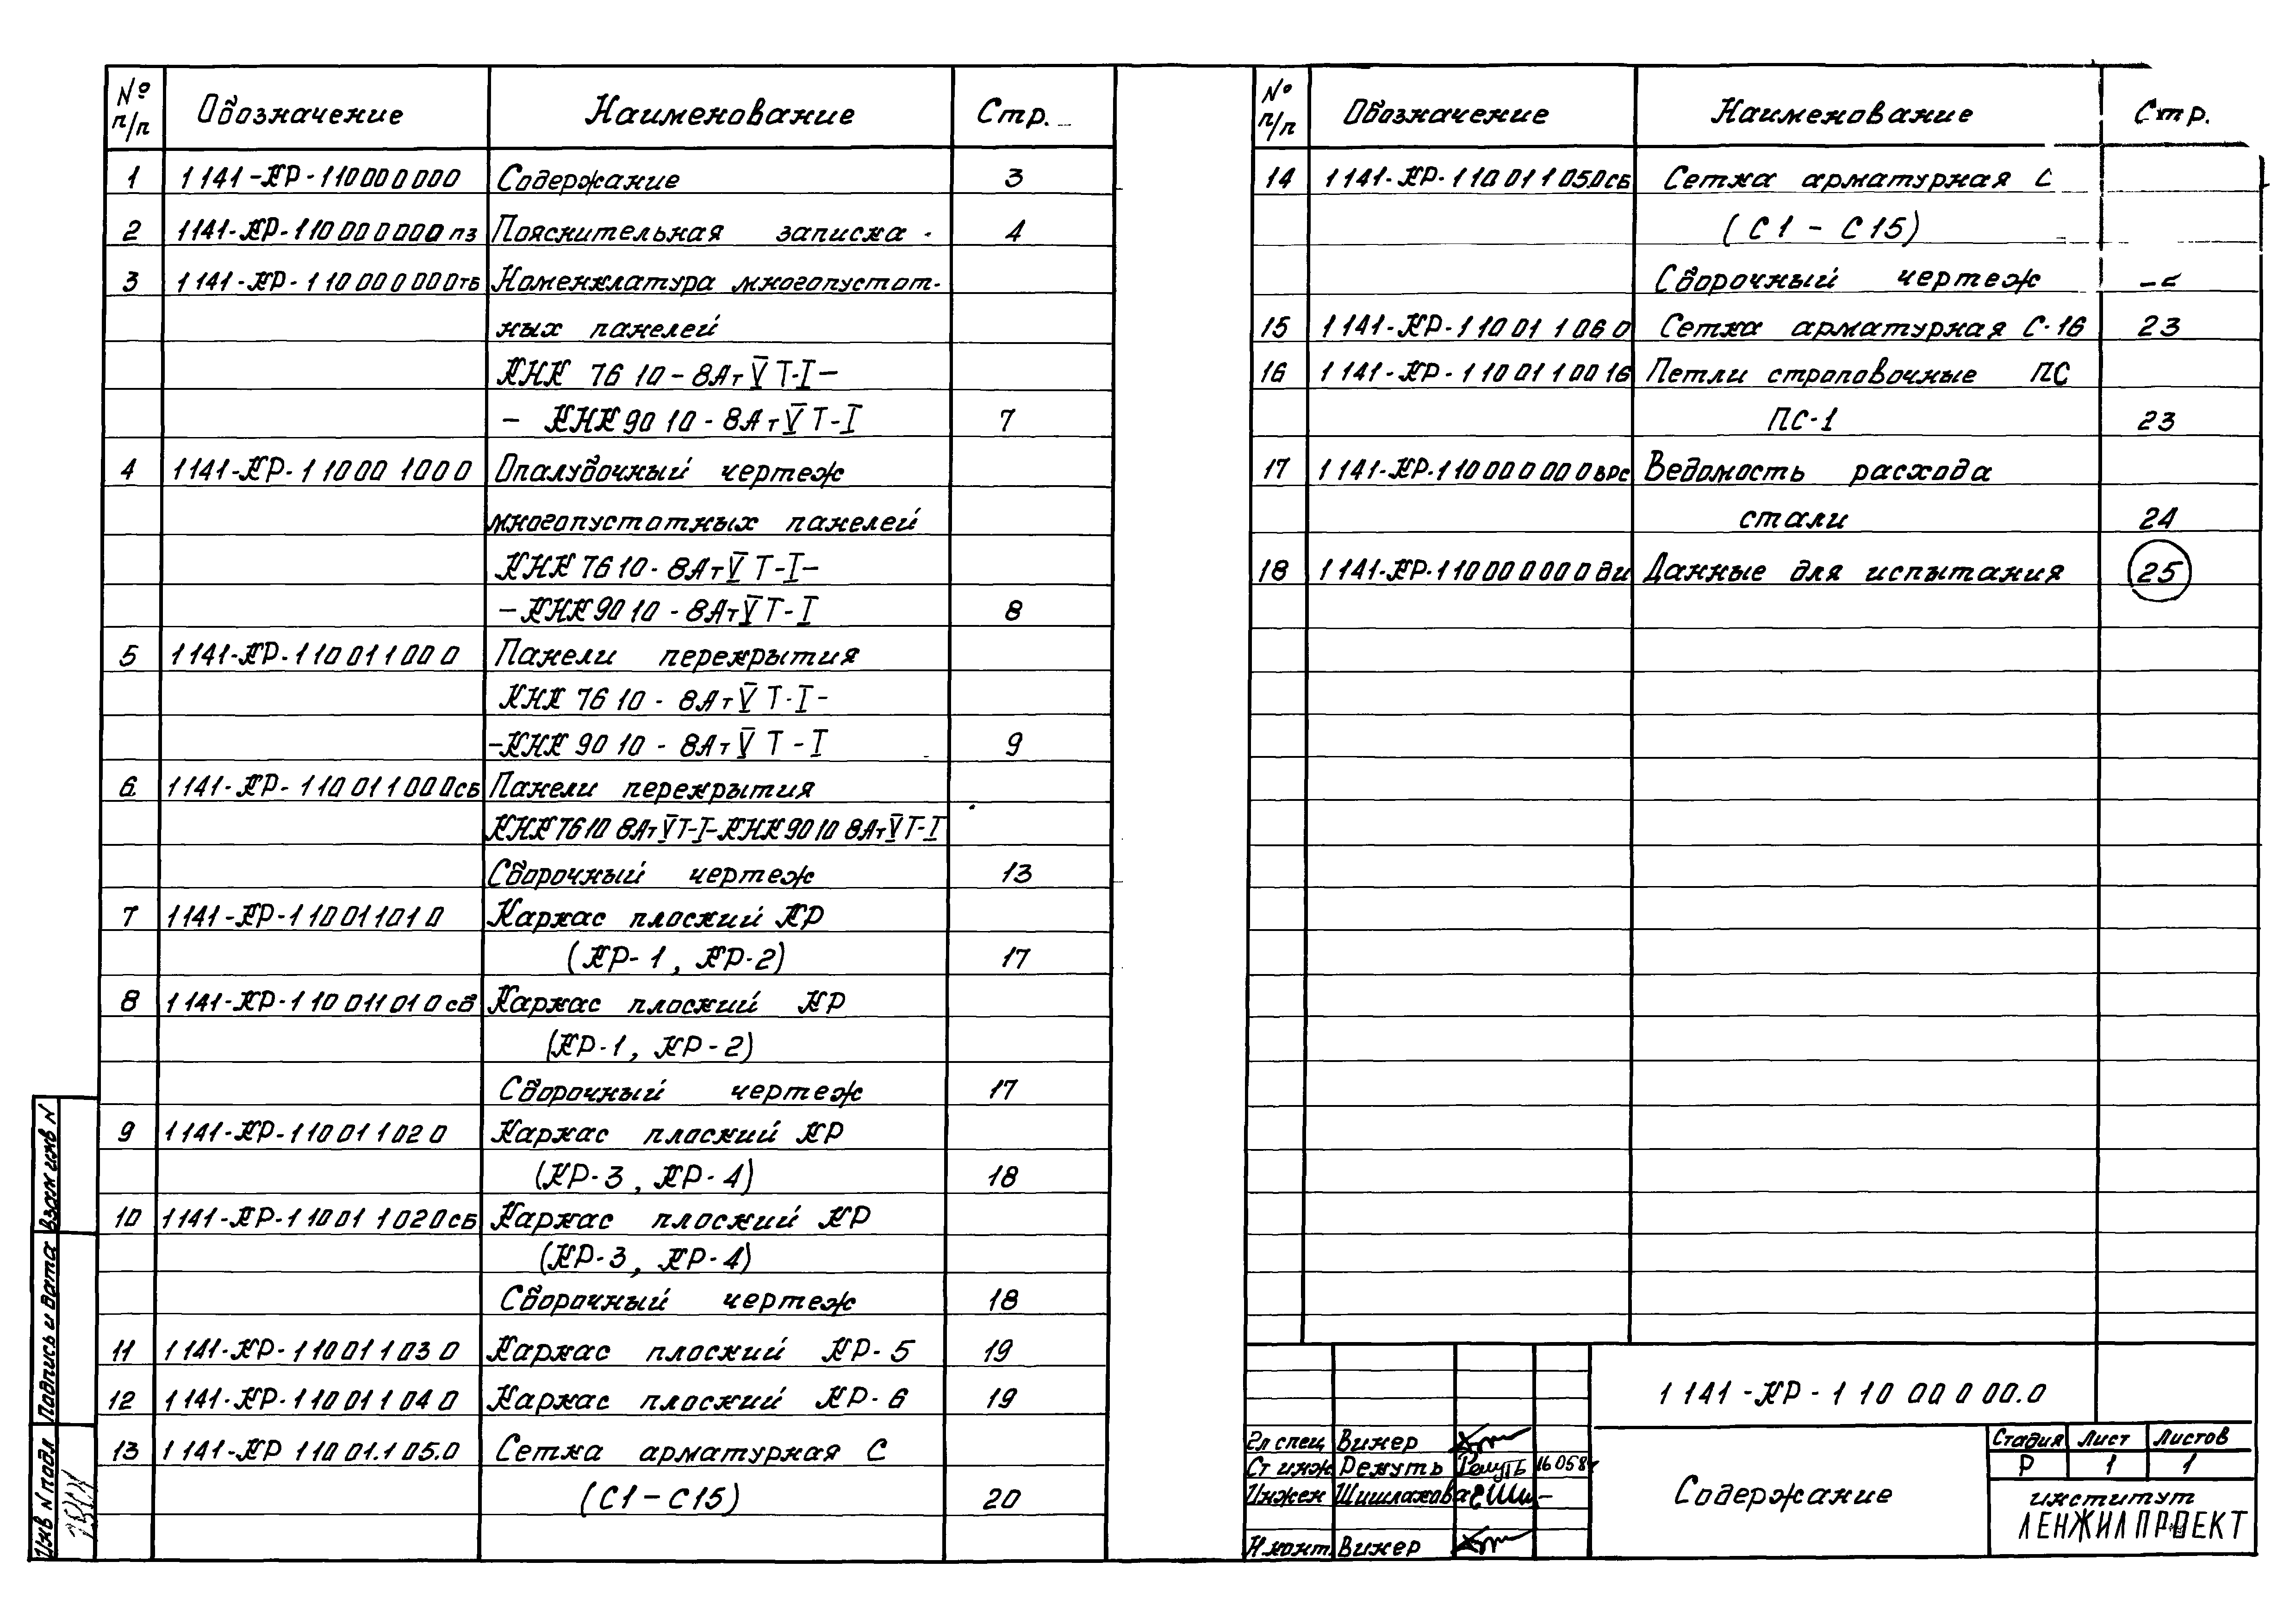 № п/п Обозначение Наименование Стр.
1 1141-КР-110000000 Содержание 3
2 1141-КР-110000000пз Пояснительная записка 4
3 1141-КР-110000000тб Номенклатура многопустот-
ных панелей
КНК 7610-8АтV Т-I-
- КНК 9010-8АтV Т-I 7
4 1141-КР-110001000 Опалубочный чертеж
многопустотных панелей
КНК 7610-8АтV Т-I-
-КНК 9010-8АтV Т-I 8
5 1141-КР-110011000 Панели перекрытия
КНК 7610-8АтV Т-I-
-КНК 9010-8АтV Т-I 9
6 1141-КР-110011000сб Панели перекрытия
КНК 7610 8АтV Т-I-КНК 9010 8АтV Т-I
Сборочный чертеж 13
7 1141-КР-110011010 Каркас плоский КР
(КР-1, КР-2) 17
8 1141-КР-110011010сб Каркас плоский КР
(КР-1, КР-2)
Сборочный чертеж 17
9 1141-КР-110011020 Каркас плоский КР
(КР-3, КР-4) 18
10 1141-КР-110011020сб Каркас плоский КР
(КР-3, КР-4)
Сборочный чертеж 18
11 1141-КР-110011030 Каркас плоский КР-5 19
12 1141-КР-110011040 Каркас плоский КР-6 19
13 1141-КР 11001.105.0 Сетка арматурная С
(С1-С15) 20
№ п/п Обозначение Наименование Стр.
14 1141-КР-110011050сб Сетка арматурная С
(С1-С15)
Сборочный чертеж
15 1141-КР-110011060 Сетка арматурная С-16 23
16 1141-КР-1100110016 Петли строповочные ПС
ПС-1 23
17 1141-КР-110000000врс Ведомость расхода
стали 24
18 1141-КР-110000000ди Данные для испытания 25
1141-КР-110 00 0 00.0
Гл спец Викер
Ст инж Рекуть 16 05 8
Инжен Шишлакова
Н.конт. Викер
Содержание
Стадия Лист Листов
Р 1 1
институт
ЛЕНЖИЛПРОЕКТ
Взам инв N
Подпись и дата
Инв N подл